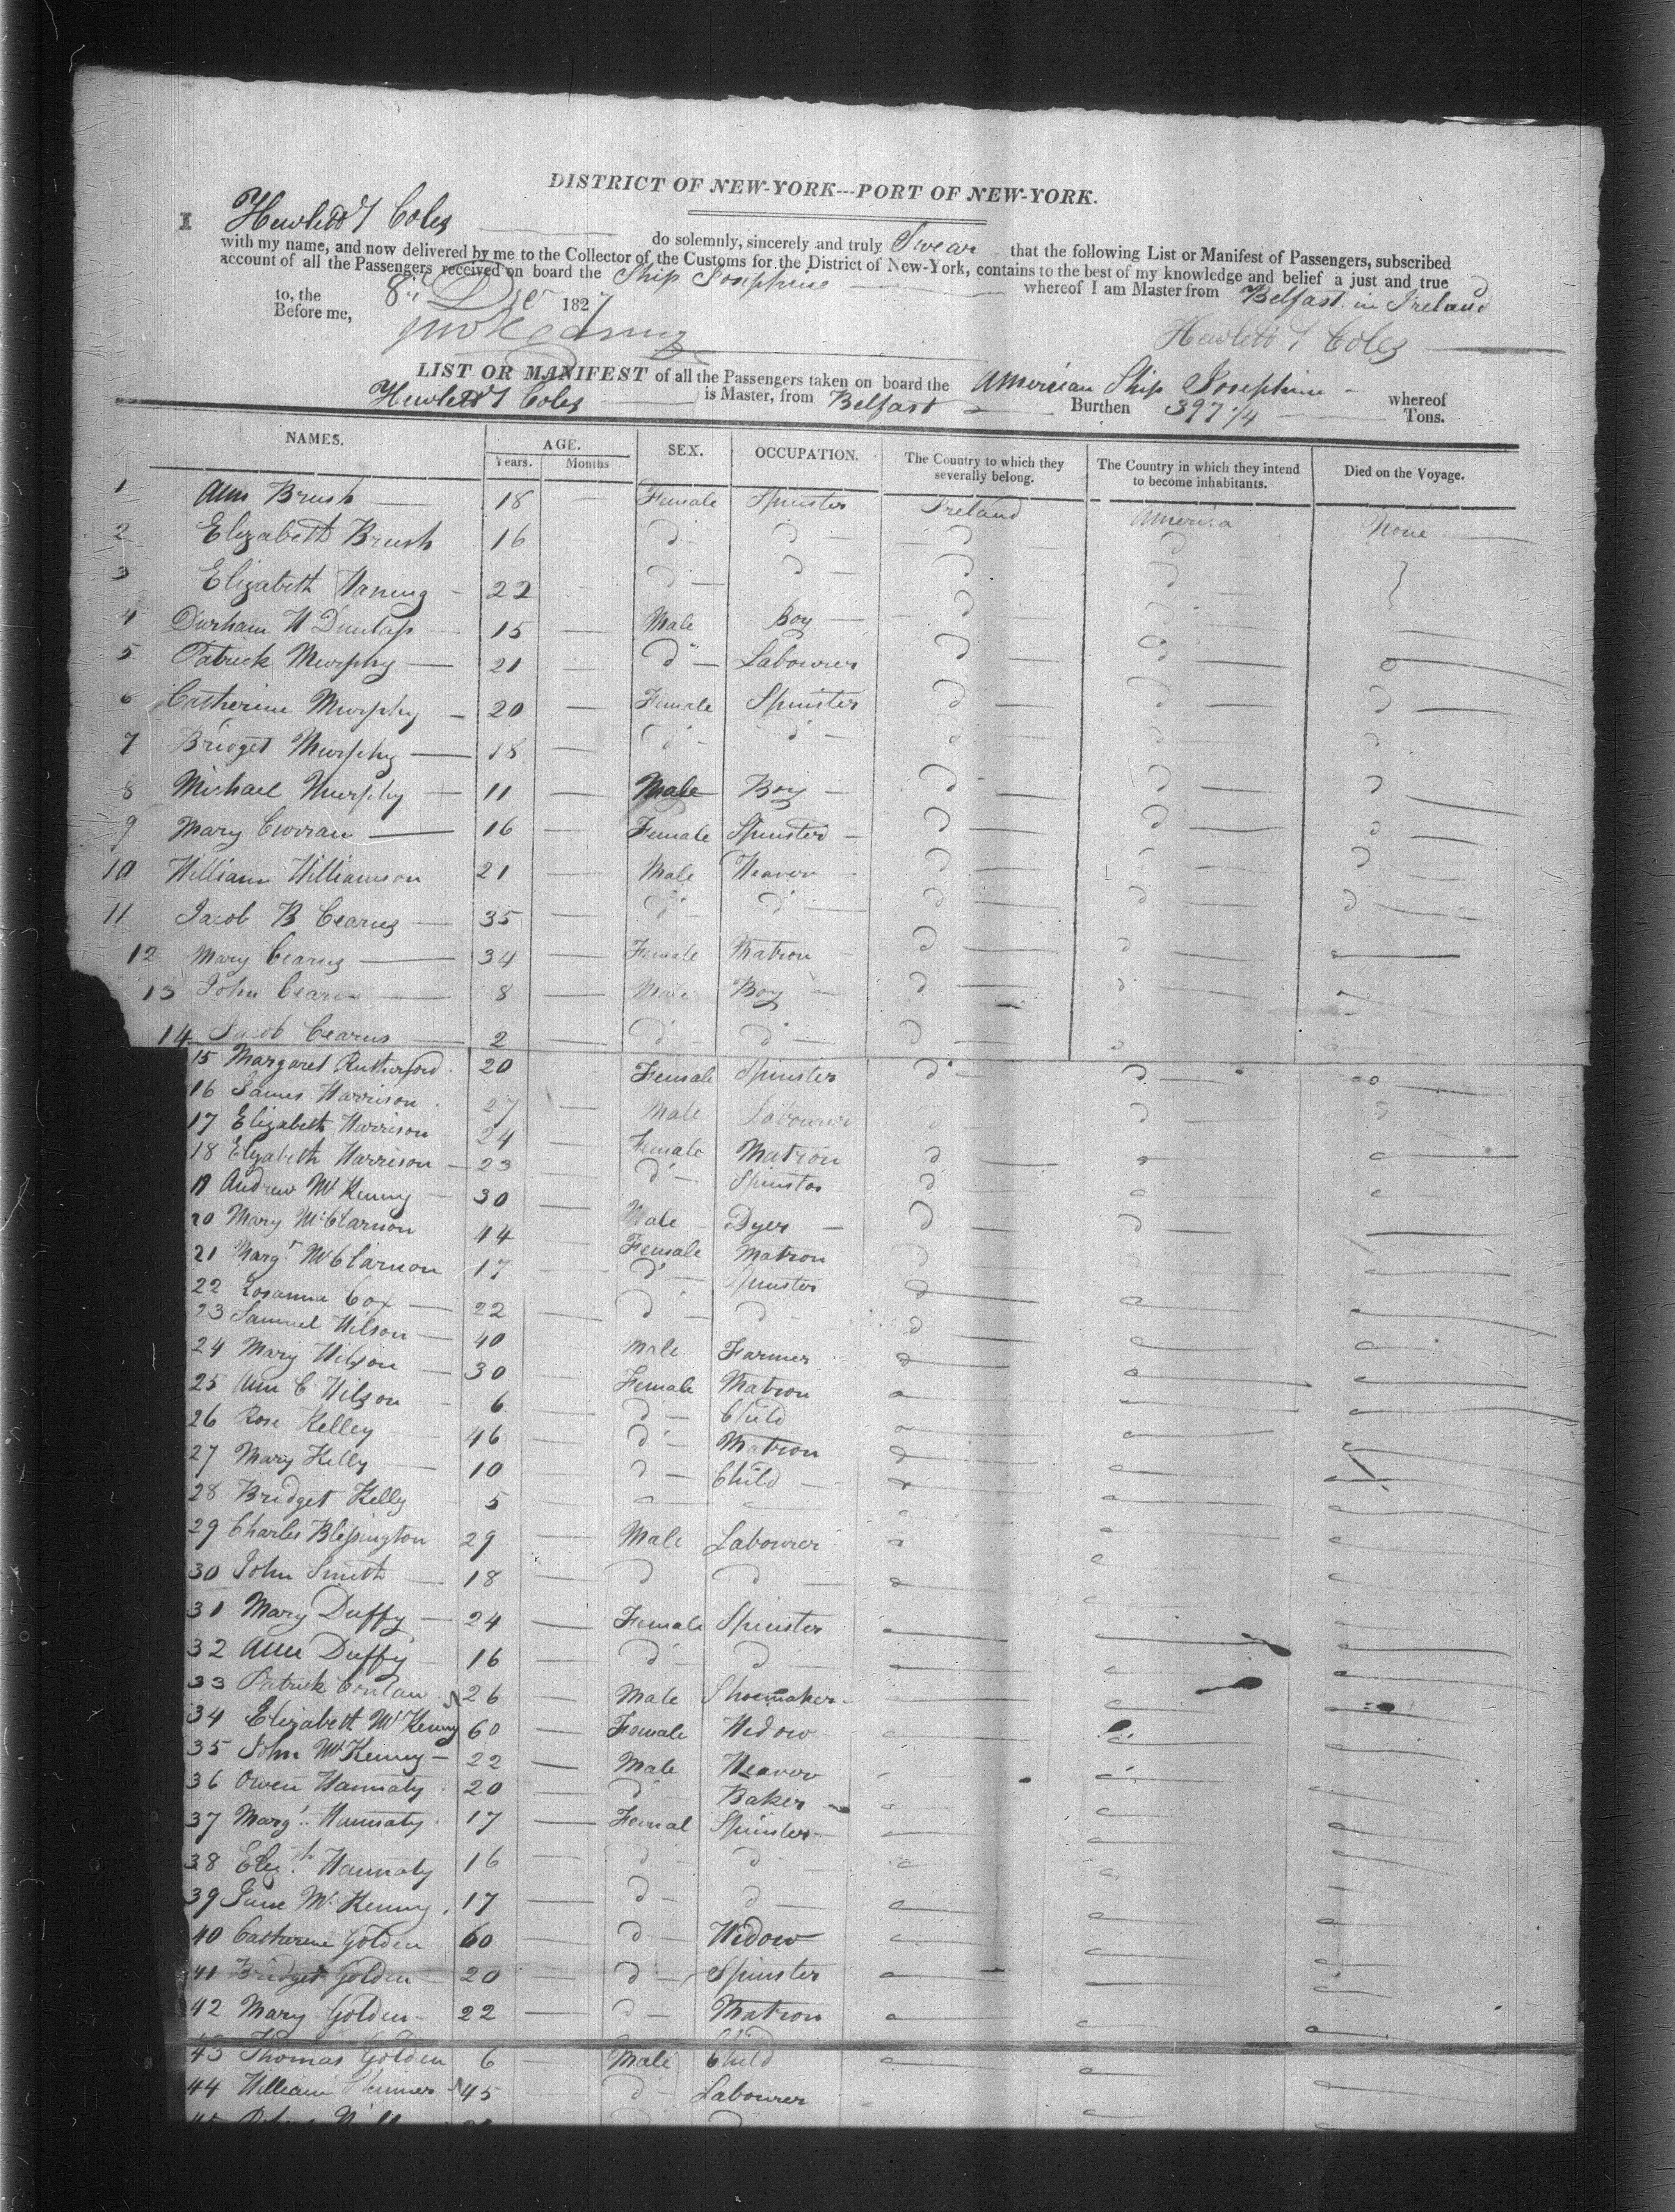 DISTRICT OF NEW-YORK---PORT OF NEW-YORK.
I Hewlett T Coles do solemnly, sincerely and truly Swear that the following List or Manifest of Passengers, subscribed
with my name, and now delivered by me to the Collector of the Customs for the District of New-York, contains to the best of my knowledge and belief a just and true
account of all the Passengers received on board the Ship Josephine whereof I am Master from Belfast in Ireland
to, the 8th Dec 1827
Before me,
Hewlett T Coles
LIST OR MANIFEST of all the Passengers taken on board the American Ship Josephine whereof
Hewlett T Coles is Master, from Belfast Burthen 397 1/4 Tons.
NAMES. AGE. Years. Months SEX. OCCUPATION. The Country to which they severally belong. The Country in which they intend to become inhabitants. Died on the Voyage.
1 Ann Brush 18 Female Spinster Ireland America None
2 Elizabeth Brush 16 do do do do
3 Elizabeth 22 do do do do
4 Durham W Dunlap 15 Male Boy do do
5 Patrick Murphy 21 do Labourer do do
6 Catherine Murphy 20 Female Spinster do do do
7 Bridget Murphy 18 do do do do do
8 Michael Murphy 11 Male Boy do do do
9 Mary Curran 16 Female Spinster do do do
10 William Williamson 21 Male Weaver do do do
11 Jacob B Cearns 35 do do do do do
12 Mary Cearns 34 Female Matron do do
13 John Cearns 8 Male Boy do do
14 Jacob Cearns 2 do do do
15 Margaret Rutherford 20 Female Spinster do do
16 James Harrison 27 Male Labourer do do
17 Elizabeth Harrison 24 Female Matron do
18 Elizabeth Harrison 23 do Spinster do
19 Andrew McKenny 30 Male Dyer do do
20 Mary McClarnon 44 Female Matron do
21 Margt McClarnon 17 do Spinster do
22 Rosanna Cox 22 do do do
23 Samuel Wilson 40 Male Farmer do
24 Mary Wilson 30 Female Matron
25 Ann C Wilson 6 do Child
26 Rose Kelley 46 do Matron
27 Mary Kelly 10 do Child
28 Bridget Kelly 5
29 Charles Blessington 29 Male Labourer
30 John Smith 18 do do
31 Mary Duffy 24 Female Spinster
32 Ann Duffy 16 do do
33 Patrick Conlan 26 Male Shoemaker
34 Elizabeth McKenny 60 Female Widow
35 John McKenny 22 Male Weaver
36 Owen Hannaty 20 do Baker
37 Margt Hannaty 17 Femal Spinster
38 Elizth Hannaty 16 do do
39 Jane McKenny 17 do do
40 Catherine Golden 60 do Widow
41 Bridget Golden 20 do Spinster
42 Mary Golden 22 do Matron
43 Thomas Golden 6 Male Child
44 William 45 do Labourer